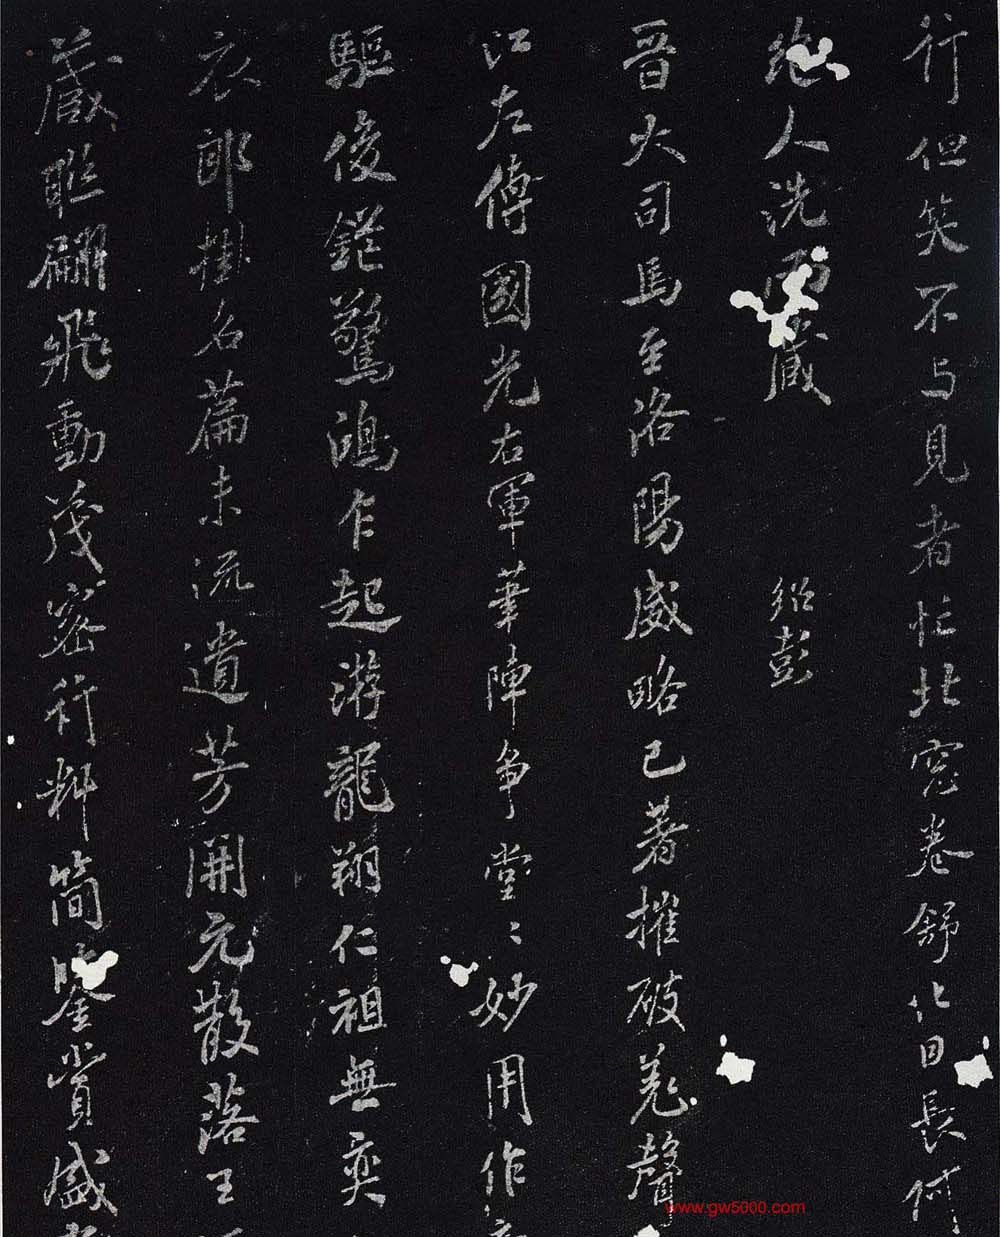 行但笑不与見者忙北窓卷舒化日長何
絶人洗而蔵
紹彭
晉大司馬至洛陽威略已著摧破羌聲
江左傳國光右軍筆陣爭堂〻妙用作
驅俊鋩驚鴻乍起游龍翔仁祖無奕
衣郎掛名篇末流遺芳開元散落王
蔵聯翩飛動茂密行斜簡鑒賞盛
www.gw5000.com